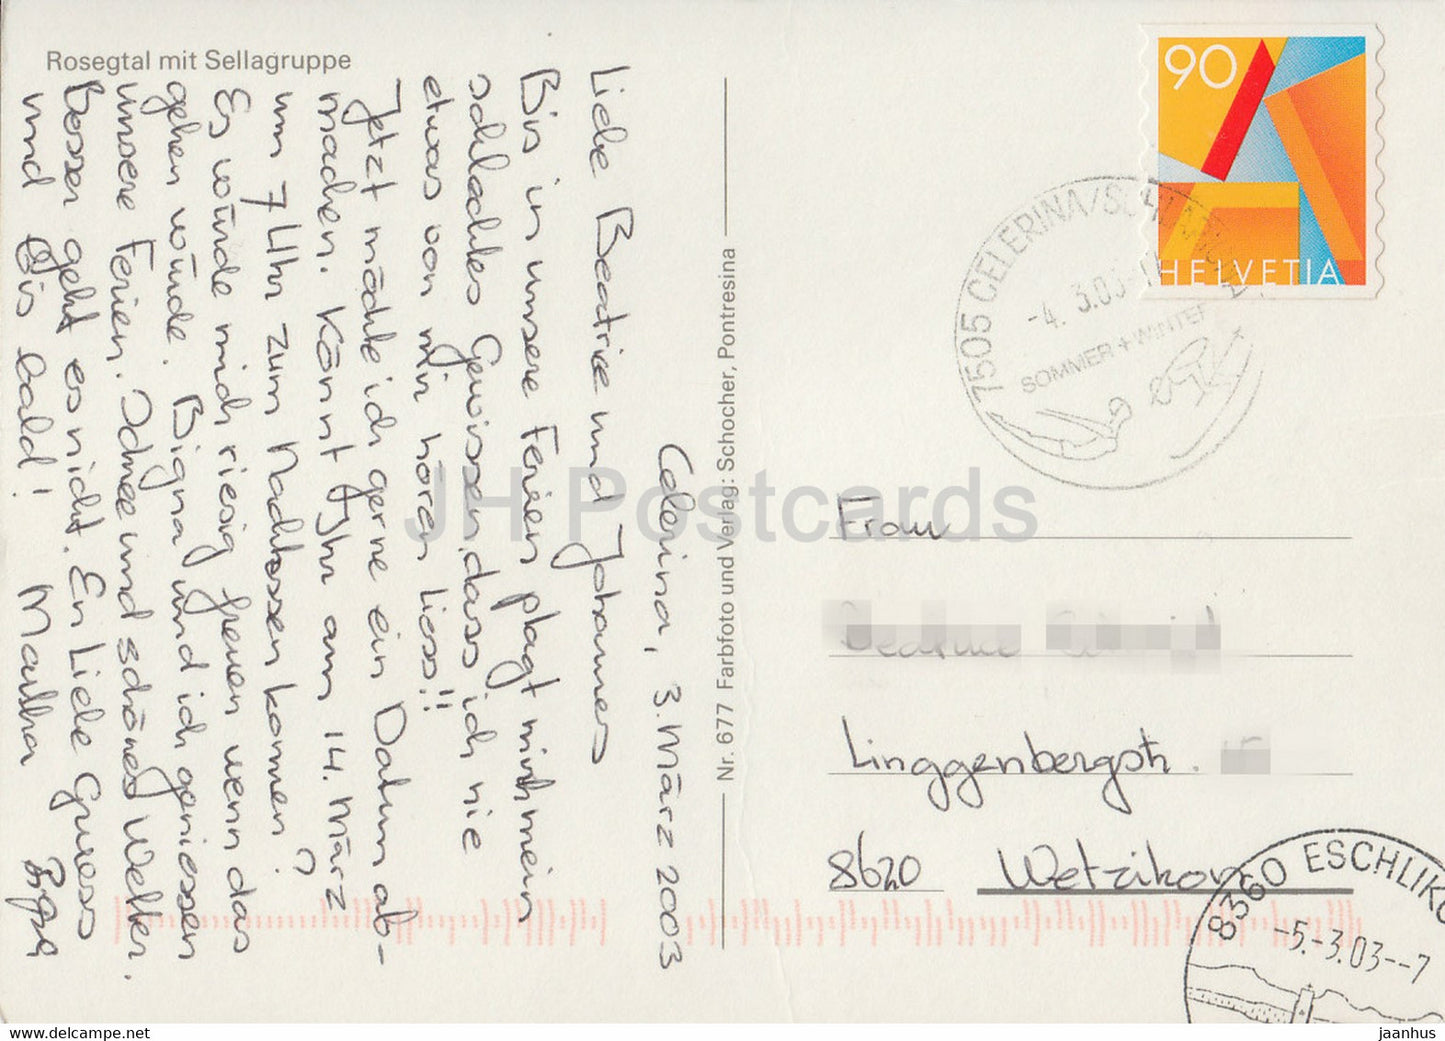 Rosegtal mit Sellagruppe
Celerina, 3. März 2003
Liebe Beatrice und Johannes
Bis in unsere Ferien plagt mich mein
schlechtes Gewissen, dass ich nie
etwas von mir hören liess!!
Jetzt möchte ich gerne ein Datum ab-
machen. Könnt Ihr am 14. März
um 7 Uhr zum Nachtessen kommen?
Es würde mich riesig freuen wenn das
gehen würde. Bigna und ich geniessen
unsere Ferien. Schnee und schönes Wetter.
Besser geht es nicht. En Liebe Gruess
und bis bald! Martha Bigna
Nr. 677 Farbfoto und Verlag: Schocher, Pontresina
90
HELVETIA
7505 CELERINA/SCHLARIGNA
-4. 3.03
SOMMER + WINTER
Frau
Linggenbergstr.
8620 Wetzikon
8360 ESCHLIKO
-5.-3.03--7
JH Postcards
www.delcampe.net
jaanhus